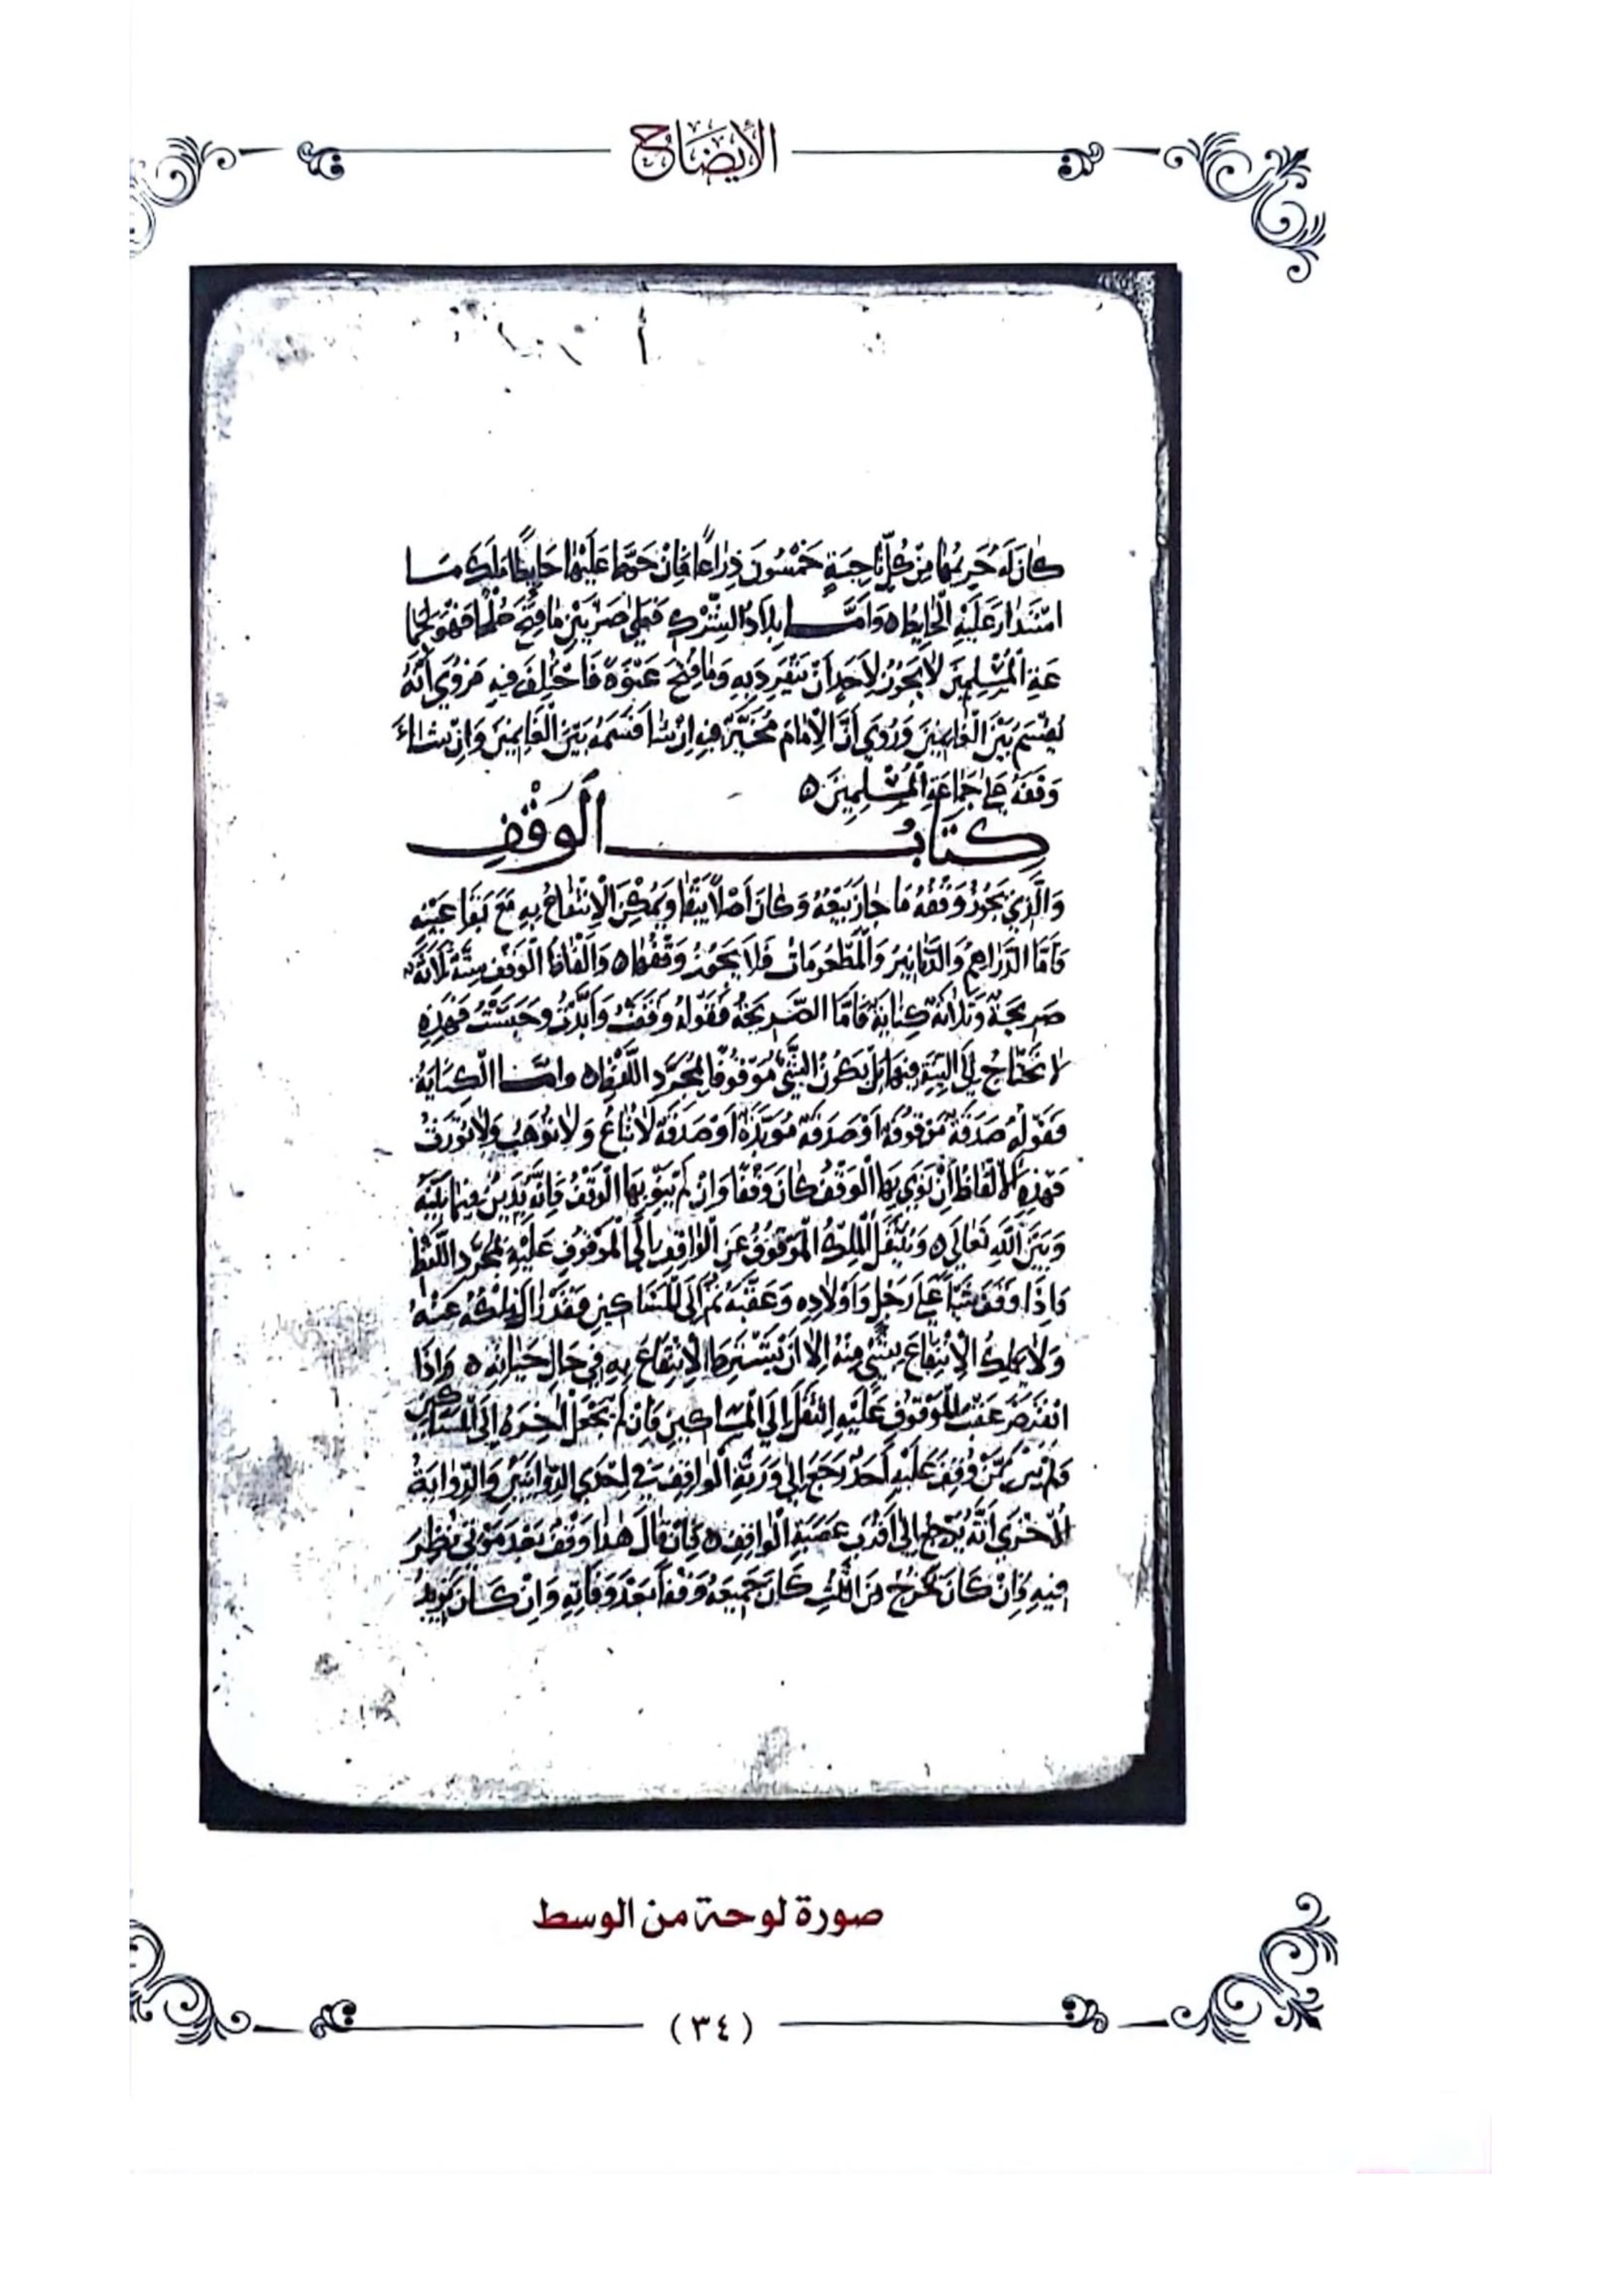 الإيضاح
كَانَ لَهُ حَرِيمُهَا مِنْ كُلِّ نَاحِيَةٍ خَمْسُونَ ذِرَاعًا فَإِنْ حَوَّطَ عَلَيْهَا حَايِطًا مَلَكَ مَا
اسْتَدَارَ عَلَيْهِ الْحَايِطُ ه وَأَمَّا بِلَادُ الشِّرْكِ فَعَلَى ضَرْبَيْنِ مَا فُتِحَ صُلْحًا فَهُوَ لِجَمَا
عَةِ الْمُسْلِمِينَ لَا يَجُوزُ لِأَحَدٍ أَنْ يَنْفَرِدَ بِهِ وَمَا فُتِحَ عَنْوَةً فَاخْتُلِفَ فِيهِ فَرُوِيَ أَنَّهُ
يُقْسَمُ بَيْنَ الْغَانِمِينَ وَرُوِيَ أَنَّ الْإِمَامَ مُخَيَّرٌ فِيهِ إِنْ شَا قَسَمَهُ بَيْنَ الْغَانِمِينَ وَإِنْ شَاءَ
وَقَفَهُ عَلَى جَمَاعَةِ الْمُسْلِمِينَ ه
كِتَابُ الْوَقْفِ
وَالَّذِي يَجُوزُ وَقْفُهُ مَا جَازَ بَيْعُهُ وَكَانَ أَصْلًا يَبْقَا وَيُمْكِنُ الْاِنْتِفَاعُ بِهِ مَعَ بَقَا عَيْنِهِ
فَأَمَّا الدَّرَاهِمُ وَالدَّنَانِيرُ وَالْمَطْعُومَاتُ فَلَا يَجُوزُ وَقْفُهَا ه وَأَلْفَاظُ الْوَقْفِ سِتَّةٌ ثَلَاثَةٌ
صَرِيحَةٌ وَثَلَاثَةٌ كِنَايَةٌ فَأَمَّا الصَّرِيحَةُ فَقَوْلُهُ وَقَفْتُ وَأَبَّدْتُ وَحَبَسْتُ فَهَذِهِ
لَا تَحْتَاجُ إِلَى النِّيَّةِ فِيهَا بَلْ يَكُونُ الشَّيْءُ مَوْقُوفًا بِمُجَرَّدِ اللَّفْظِ ه وَأَمَّا الْكِنَايَةُ
فَقَوْلُهُ صَدَقَةٌ مَوْقُوفَةٌ أَوْ صَدَقَةٌ مُؤَبَّدَةٌ أَوْ صَدَقَةٌ لَا تُبَاعُ وَلَا تُوهَبُ وَلَا تُورَثُ
فَهَذِهِ الْأَلْفَاظُ إِنْ نَوَى بِهَا الْوَقْفَ كَانَ وَقْفًا وَإِنْ لَمْ يَنْوِ بِهَا الْوَقْفَ فَإِنَّهُ يَدِينُ فِيمَا بَيْنَهُ
وَبَيْنَ اللَّهِ تَعَالَى ه وَيَنْتَقِلُ الْمِلْكُ الْمَوْقُوفُ عَنِ الْوَاقِفِ إِلَى الْمَوْقُوفِ عَلَيْهِ بِمُجَرَّدِ اللَّفْظِ
فَإِذَا وَقَفَ شَيْئًا عَلَى رَجُلٍ وَأَوْلَادِهِ وَعَقِبِهِ ثُمَّ إِلَى الْمَسَاكِينِ فَقَدْ زَالَ مِلْكُهُ عَنْهُ
وَلَا يَمْلِكُ الْاِنْتِفَاعَ بِشَيْءٍ مِنْهُ إِلَّا أَنْ يَشْتَرِطَ الْاِنْتِفَاعَ بِهِ فِي حَالِ حَيَاتِهِ ه وَإِذَا
انْقَرَضَ عَقِبُ الْمَوْقُوفِ عَلَيْهِ انْتَقَلَ إِلَى الْمَسَاكِينِ فَإِنْ لَمْ يَجْعَلْ آخِرَهُ إِلَى الْمَسَاكِينِ
فَلَمْ يَبْقَ مِمَّنْ وُقِفَ عَلَيْهِ أَحَدٌ رَجَعَ إِلَى وَرَثَةِ الْوَاقِفِ فِي إِحْدَى الرِّوَايَتَيْنِ وَالرِّوَايَةُ
الْأُخْرَى أَنَّهُ يَرْجِعُ إِلَى أَقْرَبِ عَصَبَةِ الْوَاقِفِ ه فَإِنْ قَالَ هَذَا وَقْفٌ بَعْدَ مَوْتِي نُظِرَ
فِيهِ فَإِنْ كَانَ يَخْرُجُ مِنَ الثُّلُثِ كَانَ جَمِيعَهُ وَقْفًا بَعْدَ وَفَاتِهِ وَإِنْ كَانَ يَزِيدُ
صورة لوحة من الوسط
(٣٤)